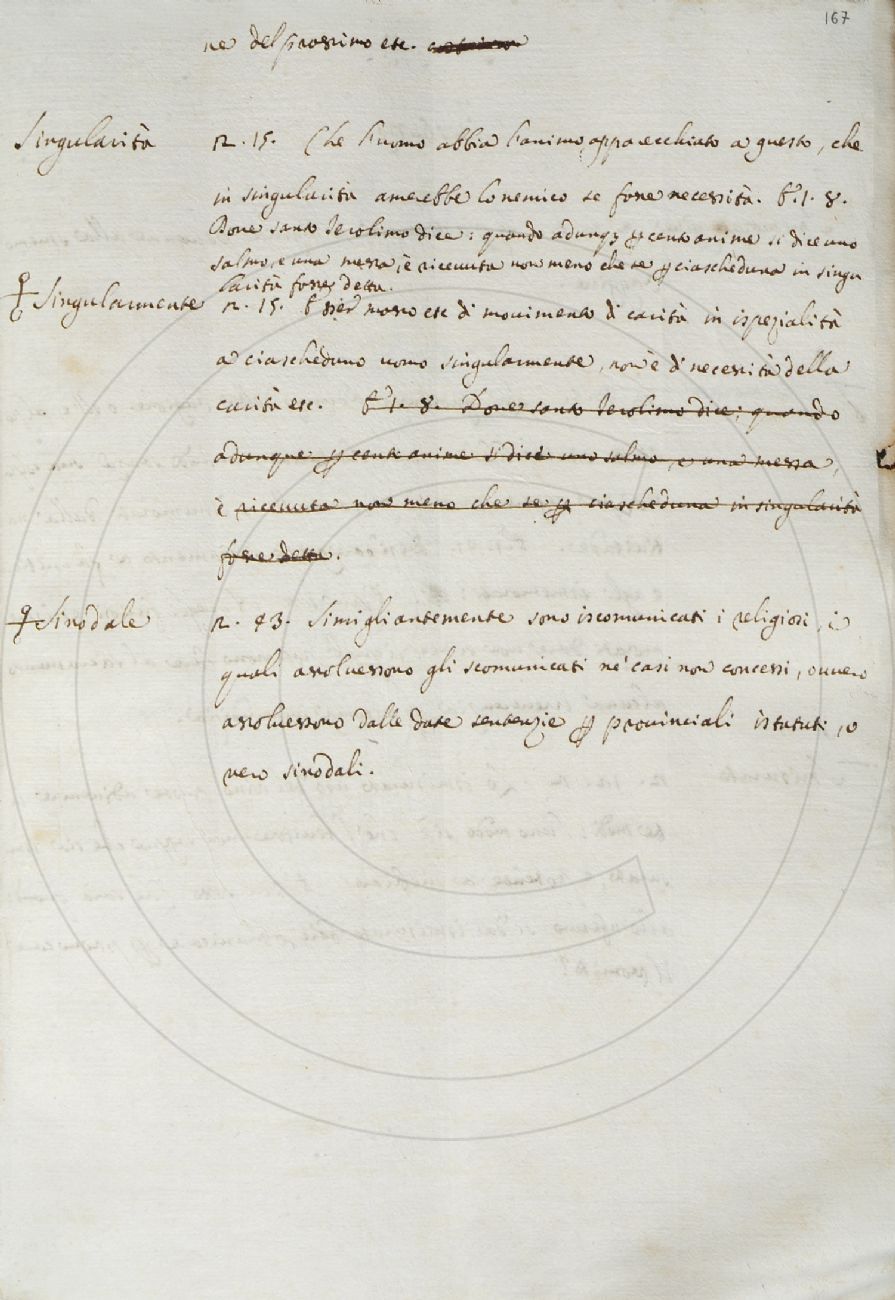 167
ne del prossimo etc.
Singularità n. 15. Che l'uomo abbia l'animo apparecchiato a questo, che
in singularità amerebbe lo nemico se fosse necessità. t. 1. 8.
Dove santo Jerolimo dice: quando adunq; p cento anime si dice uno
salmo, e una messa, è ricevuta non meno che se p ciascheduna in singu
larità fosse detta.
Singularmente n. 15. Esser mosso etc di movimento di carità in ispezialità
a ciascheduno uomo singularmente, non è di necessità della
carità etc. t. 1. 8. Dove santo Jerolimo dice; quando
adunque p cento anime si dice uno salmo, e una messa,
è ricevuta non meno che se p ciascheduna in singularità
fosse detta.
Sinodale n. 43. Simigliantemente sono iscomunicati i religiosi, i
quali assolvessono gli scomunicati ne' casi non concessi, ovvero
assolvessono dalle date sentenzie p provinciali istatuti, o
vero sinodali.